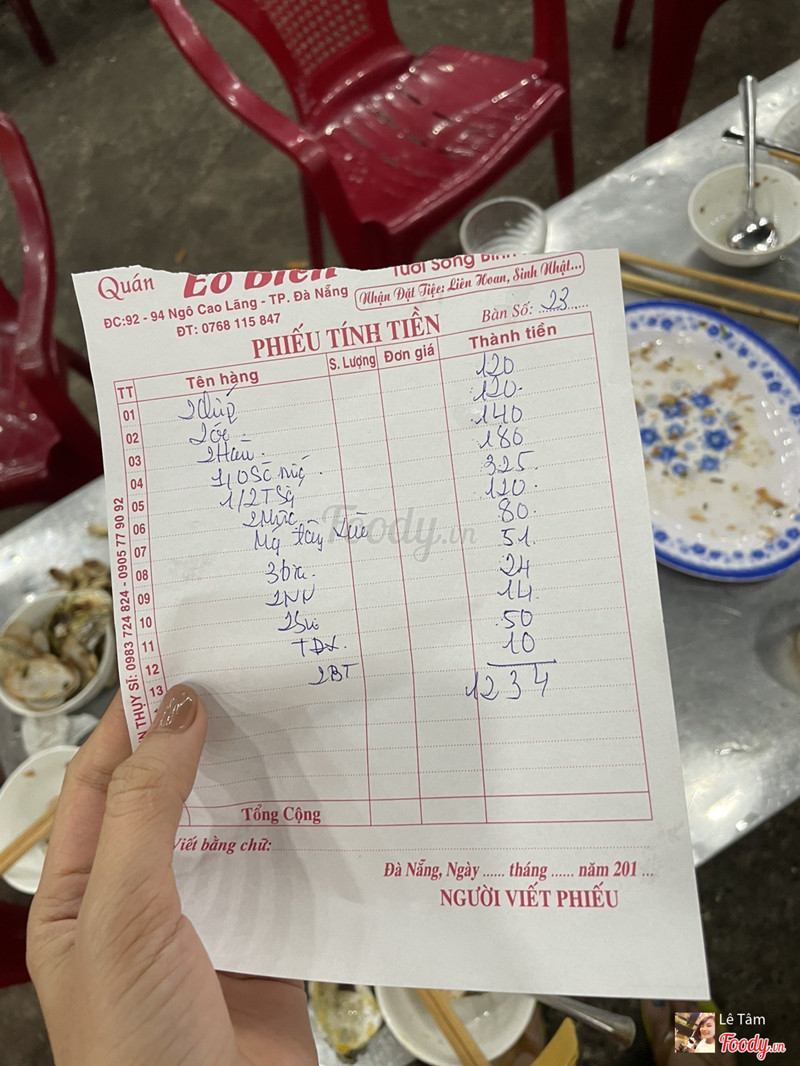 Quán Eo Biển
Tươi Sống
Nhận Đặt Tiệc: Liên Hoan, Sinh Nhật...
ĐC:92 - 94 Ngô Cao Lãng - TP. Đà Nẵng
ĐT: 0768 115 847
PHIẾU TÍNH TIỀN
Bàn Số: 23
TT Tên hàng S. Lượng Đơn giá Thành tiền
01 120
02 2 ốc 120
03 140
04 180
05 325
06 120
07 80
08 3 bia 51
09 2NN 24
10 14
11 50
12 2BT 10
13 1234
Tổng Cộng
Viết bằng chữ:
Đà Nẵng, Ngày ...... tháng ...... năm 201 ...
NGƯỜI VIẾT PHIẾU
THỤY SĨ: 0983 724 824 - 0905 77 90 92
Foody.vn
Lê Tâm
Foody.vn